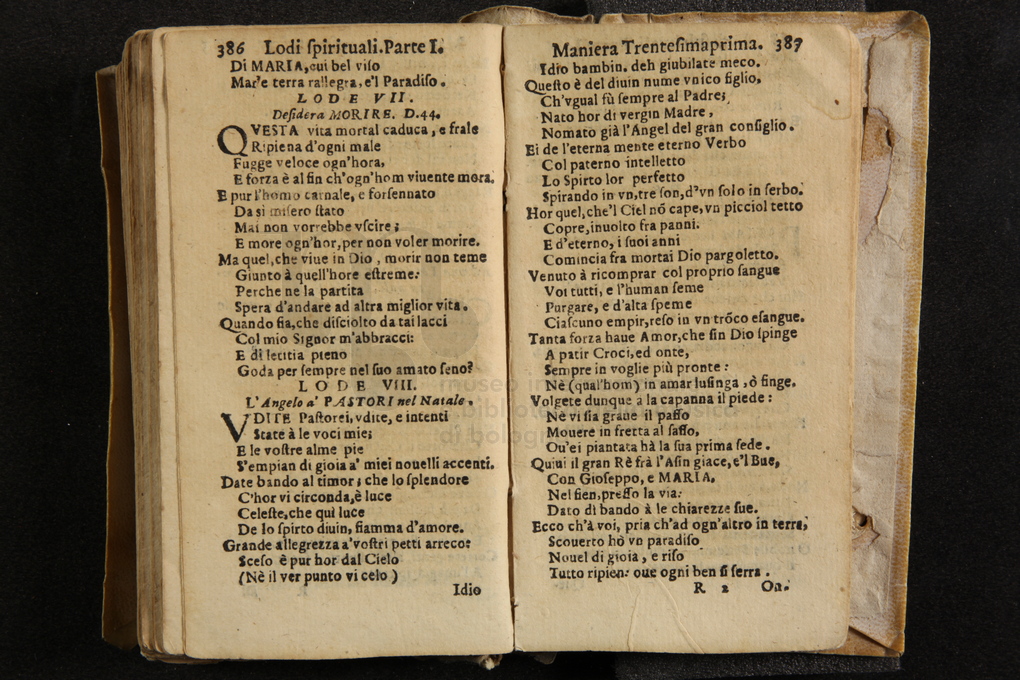 386 Lodi ſpirituali.Parte I.
Di MARIA,cui bel viſo
Mar'e terra rallegra, e'l Paradiſo.
LODE VII.
Deſidera MORIRE. D.44.
QVESTA vita mortal caduca, e frale
Ripiena d'ogni male
Fugge veloce ogn'hora,
E forza è al fin ch'ogn'hom viuente mora.
E pur l'homo carnale, e forſennato
Da sì miſero ſtato
Mai non vorrebbe vſcire;
E more ogn'hor,per non voler morire.
Ma quel,che viue in Dio, morir non teme
Giunto à quell'hore eſtreme:
Perche ne la partita
Spera d'andare ad altra miglior vita.
Quando fia,che diſciolto da tai lacci
Col mio Signor m'abbracci:
E di letitia pieno
Goda per ſempre nel ſuo amato ſeno?
LODE VIII.
L'Angelo a' PASTORI nel Natale.
VDITE Paſtorei, vdite, e intenti
State à le voci mie;
E le voſtre alme pie
S'empian di gioia a' miei nouelli accenti.
Date bando al timor; che lo ſplendore
C'hor vi circonda,è luce
Celeſte,che quì luce
De lo ſpirto diuin, fiamma d'amore.
Grande allegrezza a'voſtri petti arreco:
Sceſo è pur hor dal Cielo
(Nè il ver punto vi celo)
Idio
Maniera Trenteſimaprima. 387
Idio bambin. deh giubilate meco.
Queſto è del diuin nume vnico figlio,
Ch'vgual fù ſempre al Padre;
Nato hor di vergin Madre,
Nomato già l'Angel del gran conſiglio.
Ei de l'eterna mente eterno Verbo
Col paterno intelletto
Lo Spirto lor perfetto
Spirando in vn,tre ſon,d'vn ſolo in ſerbo.
Hor quel,che'l Ciel nõ cape,vn picciol tetto
Copre,inuolto fra panni.
E d'eterno, i ſuoi anni
Comincia fra mortai Dio pargoletto.
Venuto à ricomprar col proprio ſangue
Voi tutti, e l'human ſeme
Purgare, e d'alta ſpeme
Ciaſcuno empir,reſo in vn trõco eſangue.
Tanta forza haue Amor,che ſin Dio ſpinge
A patir Croci,ed onte,
Sempre in voglie più pronte:
Nè (qual'hom) in amar luſinga, ò finge.
Volgete dunque a la capanna il piede:
Nè vi ſia graue il paſſo
Mouere in fretta al ſaſſo,
Ou'ei piantata hà la ſua prima ſede.
Quiui il gran Rè frà l'Aſin giace,e'l Bue,
Con Gioſeppo, e MARIA,
Nel fien,preſſo la via:
Dato di bando à le chiarezze ſue.
Ecco ch'à voi, pria ch'ad ogn'altro in terra,
Scouerto hò vn paradiſo
Nouel di gioia, e riſo
Tutto ripien: oue ogni ben ſi ſerra.
R 2 On.